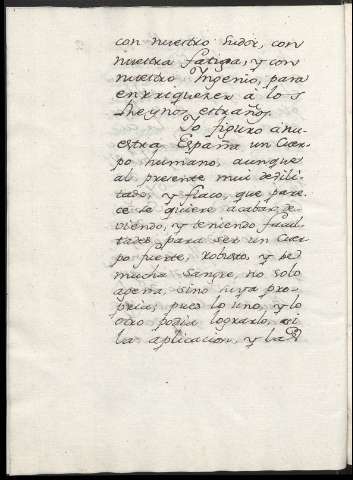 con nuestro sudor, con
nuestra fatiga, y con
nuestro Ingenio, para
enrriquezer a los
Reynos estraños.
Yo figuro a nu-
estra España un Cuer-
po humano, aunque
al presente mui debili-
tado, y flaco, que pare-
ce se quiere acabar, de-
viendo, y teniendo facul-
tades para ser un Cuer-
po fuerte, robusto, y de
mucha sangre, no solo
agena, sino suya pro-
pria; pues lo uno, y lo
otro podia lograrlo, si
la aplicacion, y la